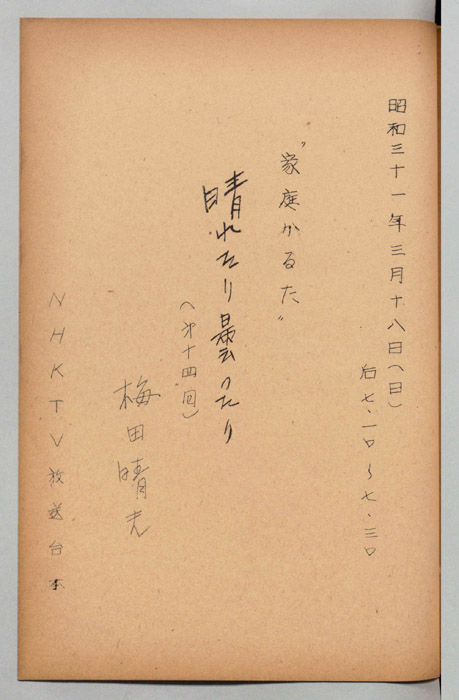 昭和三十一年三月十八日(日)
后七.一〇~七.三〇
"家庭かるた"
晴れたり曇ったり
(第十四回)
梅田晴夫
NHKTV放送台本